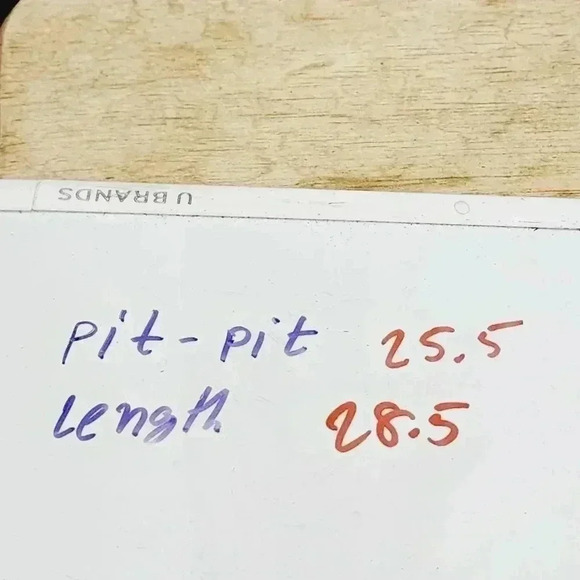 U BRANDS
pit-pit 25.5
Length 28.5